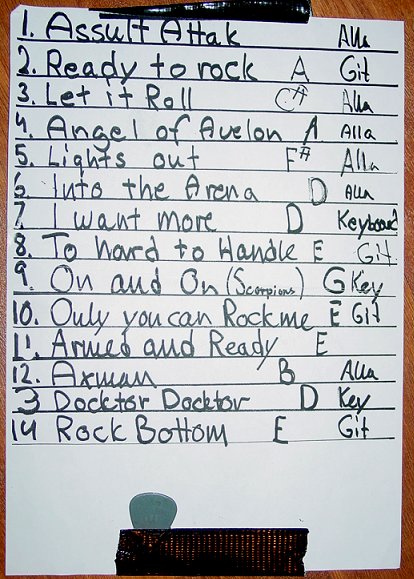 1. Assult Attak Alla
2. Ready to rock A Git
3. Let it Roll C# Alla
4. Angel of Avelon A Alla
5. Lights out F# Alla
6. Into the Arena D Alla
7. I want more D Keyboard
8. To hard to Handle E Git
9. On and On (Scorpions) G Key
10. Only you can Rock me E Git
11. Armed and Ready E
12. Axman B Alla
13 Docktor Docktor D Key
14 Rock Bottom E Git